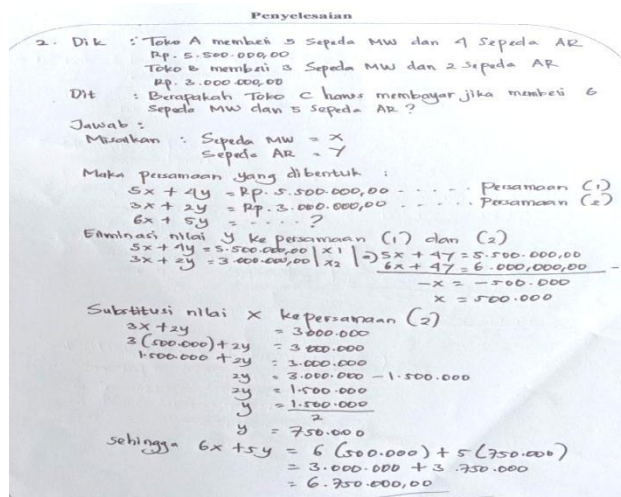 Penyelesaian
2. Dik : Toko A membeli 5 Sepeda MW dan 4 Sepeda AR
Rp. 5.500.000,00
Toko B membeli 3 Sepeda MW dan 2 Sepeda AR
Rp. 3.000.000,00
Dit : Berapakah Toko C harus membayar jika membeli 6
Sepeda MW dan 5 Sepeda AR ?
Jawab :
Misalkan : Sepeda MW = x
Sepeda AR = Y
Maka persamaan yang dibentuk :
5x + 4y = Rp. 5.500.000,00 - - - - - Persamaan (1)
3x + 2y = Rp. 3.000.000,00 - - - - - Persamaan (2)
6x + 5y = - - - - ?
Eliminasi nilai y ke persamaan (1) dan (2)
5x + 4y = 5.500.000,00 | x1 | => 5x + 4y = 5.500.000,00
3x + 2y = 3.000.000,00 | x2 | 6x + 4y = 6.000,000,00 -
-x = -500.000
x = 500.000
Substitusi nilai x ke persamaan (2)
3x + 2y = 3000.000
3 (500.000) + 2y = 3 000.000
1.500.000 + 2y = 3.000.000
2y = 3.000.000 - 1.500.000
2y = 1.500.000
y = 1.500.000
2
y = 750.000
sehingga 6x + 5y = 6 (500.000) + 5 (750.000)
= 3.000.000 + 3.750.000
= 6.750.000,00